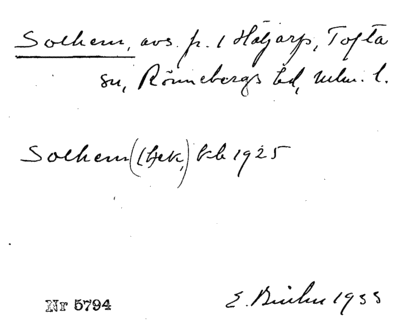 Solhem, avs. fr. 1 Häljarp, Tofta
sn, Rönnebergs hd, Mlm. l.
Solhem (lhek,) kb 1925
Nr 5794
E. 1955